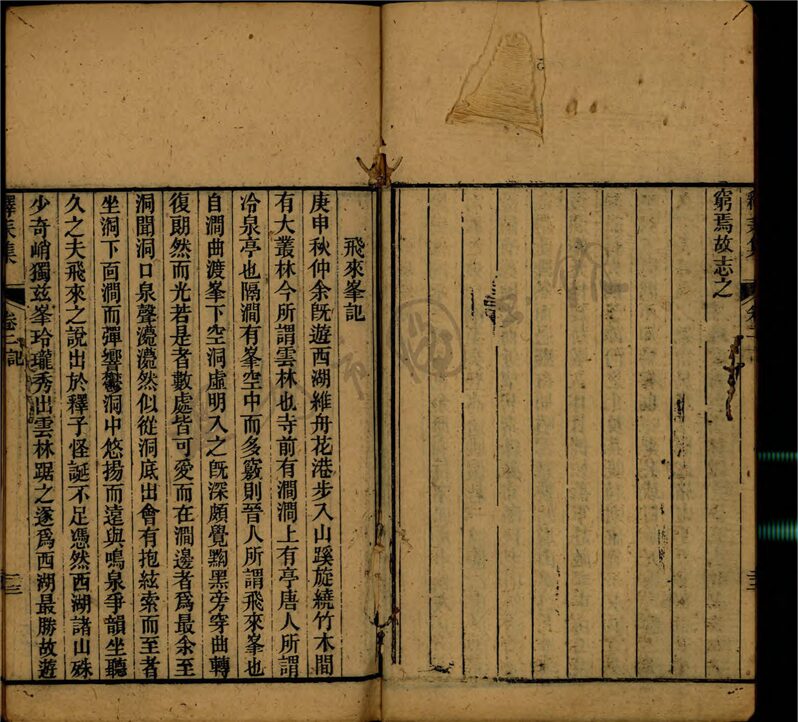 窮焉故志之
飛來峯記
庚申秋仲余旣遊西湖維舟花港步入山蹊旋繞竹木間
有大叢林今所謂雲林也寺前有澗澗上有亭唐人所謂
冷泉亭也隔澗有峯空中而多竅則晉人所謂飛來峯也
自澗曲渡峯下空洞虛明入之旣深頗覺黝黑旁穿曲轉
復朗然而光若是者數處皆可愛而在澗邊者爲最余至
洞聞洞口泉聲㶁㶁然似從洞底出會有抱絃索而至者
坐洞下面澗而彈響鬱洞中悠揚而遠與鳴泉爭韻坐聽
久之夫飛來之說出於釋子怪誕不足憑然西湖諸山殊
少奇峭獨兹峯玲瓏秀出雲林踞之遂爲西湖最勝故遊
卷二記